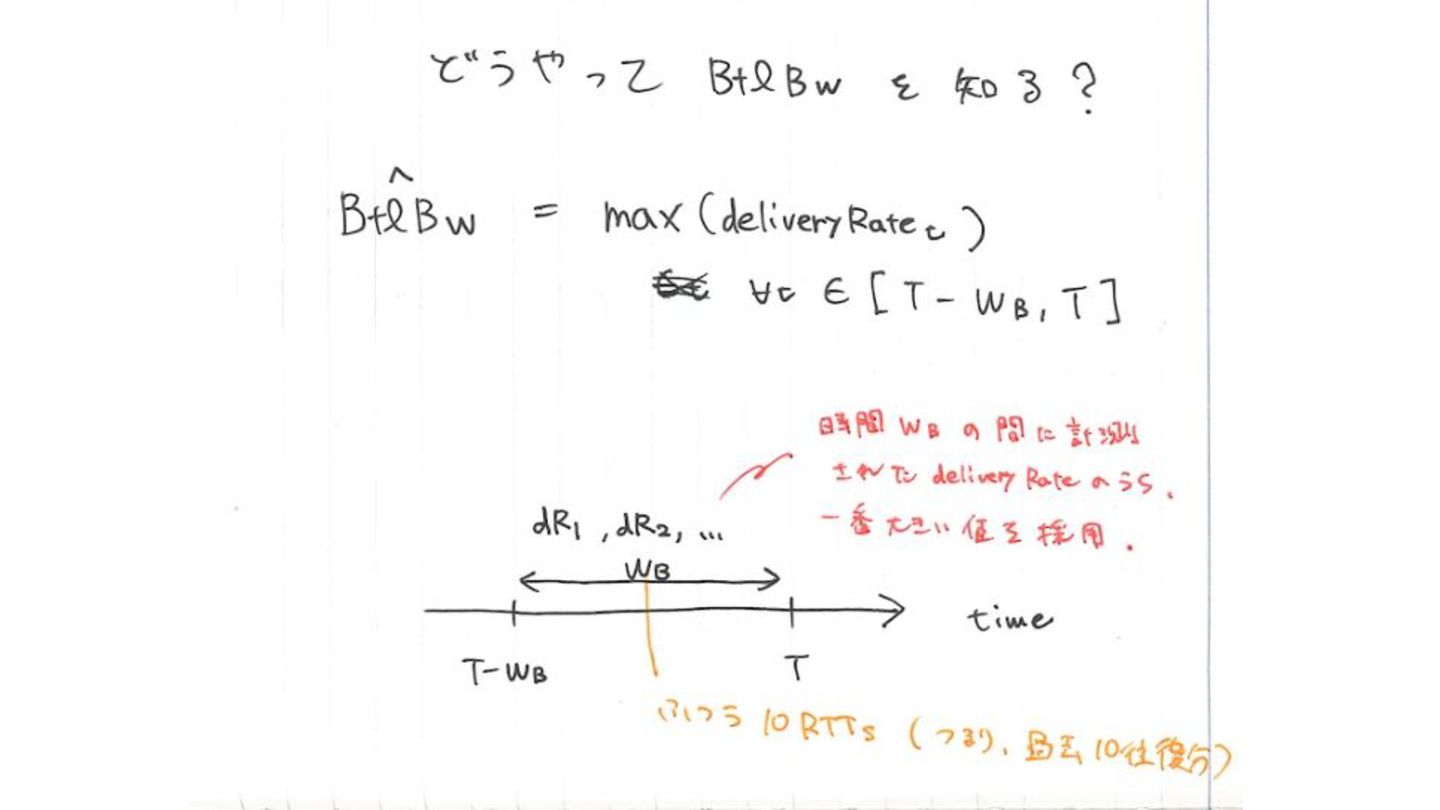 どうやって BtlBw を 知る?
^
BtlBw = max(deliveryRate t)
∀t ∈ [T - WB, T]
時間 WB の間に計測
された delivery Rate のうち、
一番大きい値を採用.
dR1, dR2, ...
WB
time
T-WB
T
ふつう 10 RTTs (つまり、過去10往復分)